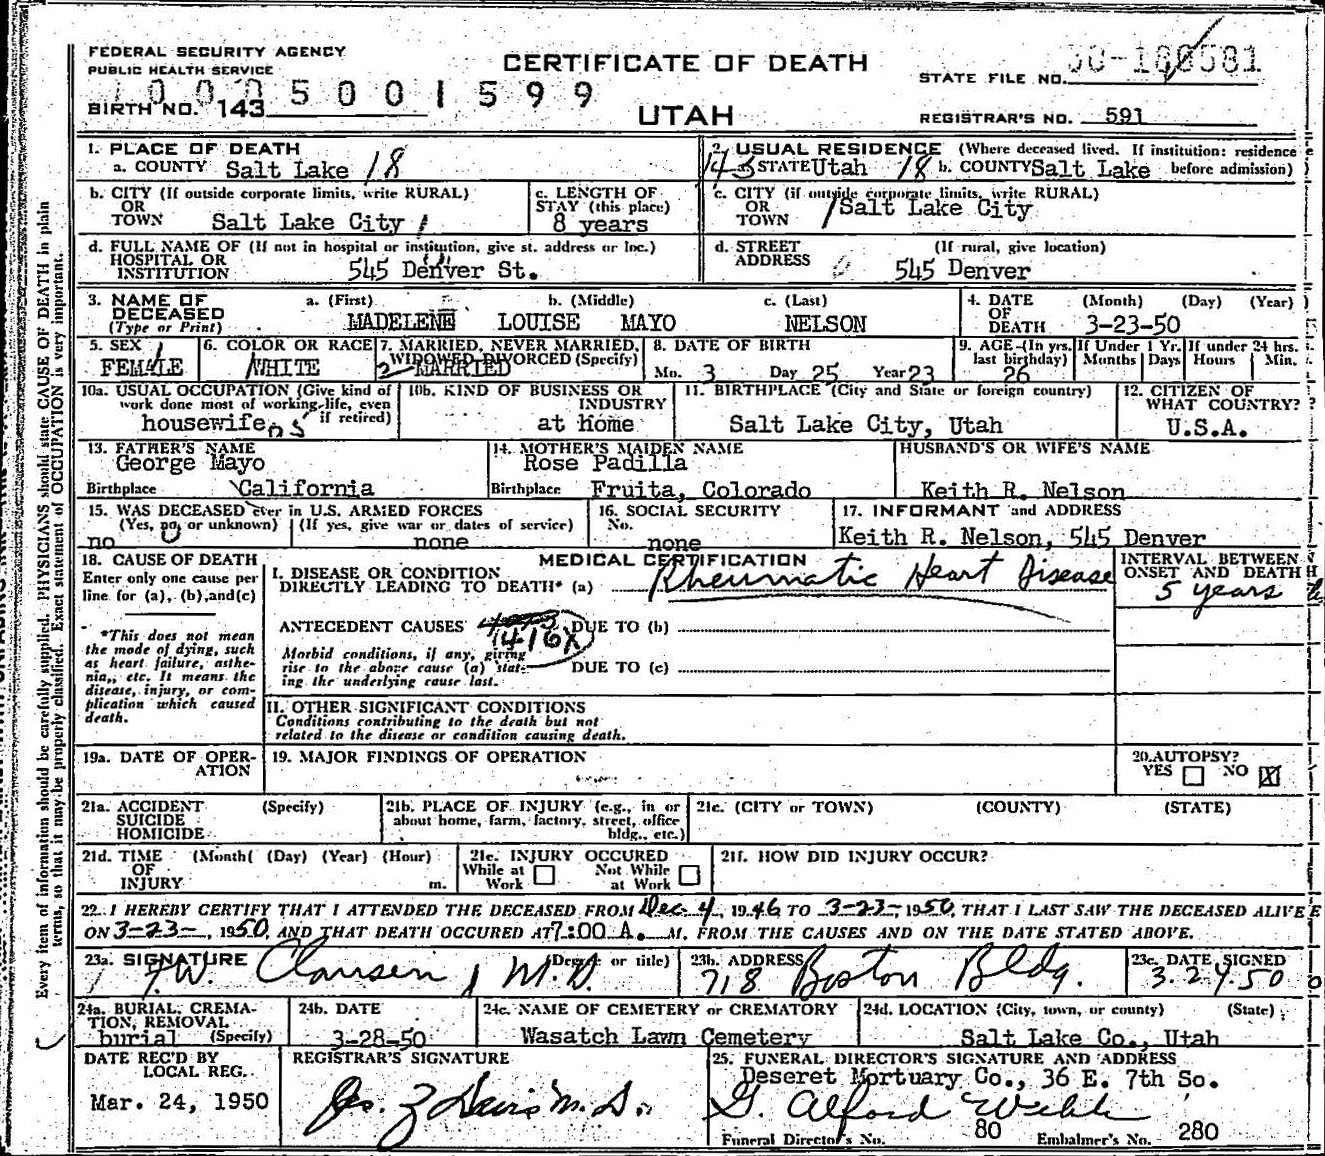 FEDERAL SECURITY AGENCY
PUBLIC HEALTH SERVICE
CERTIFICATE OF DEATH
UTAH
STATE FILE NO.
5001599
BIRTH NO. 143
REGISTRAR'S NO. 591
1. PLACE OF DEATH
a. COUNTY Salt Lake 18
2. USUAL RESIDENCE (Where deceased lived. If institution: residence before admission)
STATE Utah 18 b. COUNTY Salt Lake
b. CITY (If outside corporate limits, write RURAL)
OR
TOWN Salt Lake City
c. LENGTH OF
STAY (this place)
8 years
c. CITY (if outside corporate limits, write RURAL)
OR
TOWN Salt Lake City
d. FULL NAME OF (If not in hospital or institution, give st. address or loc.)
HOSPITAL OR
INSTITUTION 545 Denver St.
d. STREET (If rural, give location)
ADDRESS 545 Denver
3. NAME OF
DECEASED
(Type or Print)
a. (First) b. (Middle) c. (Last)
MADELENE LOUISE MAYO NELSON
4. DATE (Month) (Day) (Year)
OF
DEATH 3-23-50
5. SEX
FEMALE
6. COLOR OR RACE
WHITE
7. MARRIED, NEVER MARRIED,
WIDOWED, DIVORCED (Specify)
2 MARRIED
8. DATE OF BIRTH
Mo. 3 Day 25 Year 23
9. AGE (In yrs. last birthday)
26
If Under 1 Yr.
Months Days
If under 24 hrs.
Hours Min.
10a. USUAL OCCUPATION (Give kind of
work done most of working life, even
if retired)
housewife
10b. KIND OF BUSINESS OR
INDUSTRY
at home
11. BIRTHPLACE (City and State or foreign country)
Salt Lake City, Utah
12. CITIZEN OF
WHAT COUNTRY?
U.S.A.
13. FATHER'S NAME
George Mayo
Birthplace California
14. MOTHER'S MAIDEN NAME
Rose Padilla
Birthplace Fruita, Colorado
HUSBAND'S OR WIFE'S NAME
Keith R. Nelson
15. WAS DECEASED ever in U.S. ARMED FORCES
(Yes, no or unknown) (If yes, give war or dates of service)
no none
16. SOCIAL SECURITY
No.
none
17. INFORMANT and ADDRESS
Keith R. Nelson, 545 Denver
18. CAUSE OF DEATH
Enter only one cause per
line for (a), (b), and (c)
*This does not mean
the mode of dying, such
as heart failure, asthe-
nia,, etc. It means the
disease, injury, or com-
plication which caused
death.
MEDICAL CERTIFICATION
I. DISEASE OR CONDITION
DIRECTLY LEADING TO DEATH* (a) Rheumatic Heart Disease
INTERVAL BETWEEN
ONSET AND DEATH
5 years
ANTECEDENT CAUSES DUE TO (b)
416X
Morbid conditions, if any, giving
rise to the above cause (a) stat-
ing the underlying cause last.
DUE TO (c)
II. OTHER SIGNIFICANT CONDITIONS
Conditions contributing to the death but not
related to the disease or condition causing death.
19a. DATE OF OPER-
ATION
19. MAJOR FINDINGS OF OPERATION
20. AUTOPSY?
YES NO X
21a. ACCIDENT (Specify)
SUICIDE
HOMICIDE
21b. PLACE OF INJURY (e.g., in or
about home, farm, factory, street, office
bldg., etc.)
21c. (CITY or TOWN) (COUNTY) (STATE)
21d. TIME (Month( (Day) (Year) (Hour)
OF
INJURY m.
21e. INJURY OCCURED
While at Work Not While at Work
21f. HOW DID INJURY OCCUR?
22. I HEREBY CERTIFY THAT I ATTENDED THE DECEASED FROM Dec. 4, 1946 TO 3-23-1950, THAT I LAST SAW THE DECEASED ALIVE
ON 3-23-, 1950, AND THAT DEATH OCCURED AT 7:00 A. M. FROM THE CAUSES AND ON THE DATE STATED ABOVE.
23a. SIGNATURE (Degree or title)
F.W. Clausen, M.D.
23b. ADDRESS
718 Boston Bldg.
23c. DATE SIGNED
3.24.50
24a. BURIAL, CREMA-
TION, REMOVAL
burial (Specify)
24b. DATE
3-28-50
24c. NAME OF CEMETERY or CREMATORY
Wasatch Lawn Cemetery
24d. LOCATION (City, town, or county) (State)
Salt Lake Co., Utah
DATE REC'D BY
LOCAL REG.
Mar. 24, 1950
REGISTRAR'S SIGNATURE
25. FUNERAL DIRECTOR'S SIGNATURE AND ADDRESS
Deseret Mortuary Co., 36 E. 7th So.
G. Alford Webb
Funeral Director's No. 80 Embalmer's No. 280
Every item of information should be carefully supplied. PHYSICIANS should state CAUSE OF DEATH in plain
terms, so that it may be properly classified. Exact statement of OCCUPATION is very important.